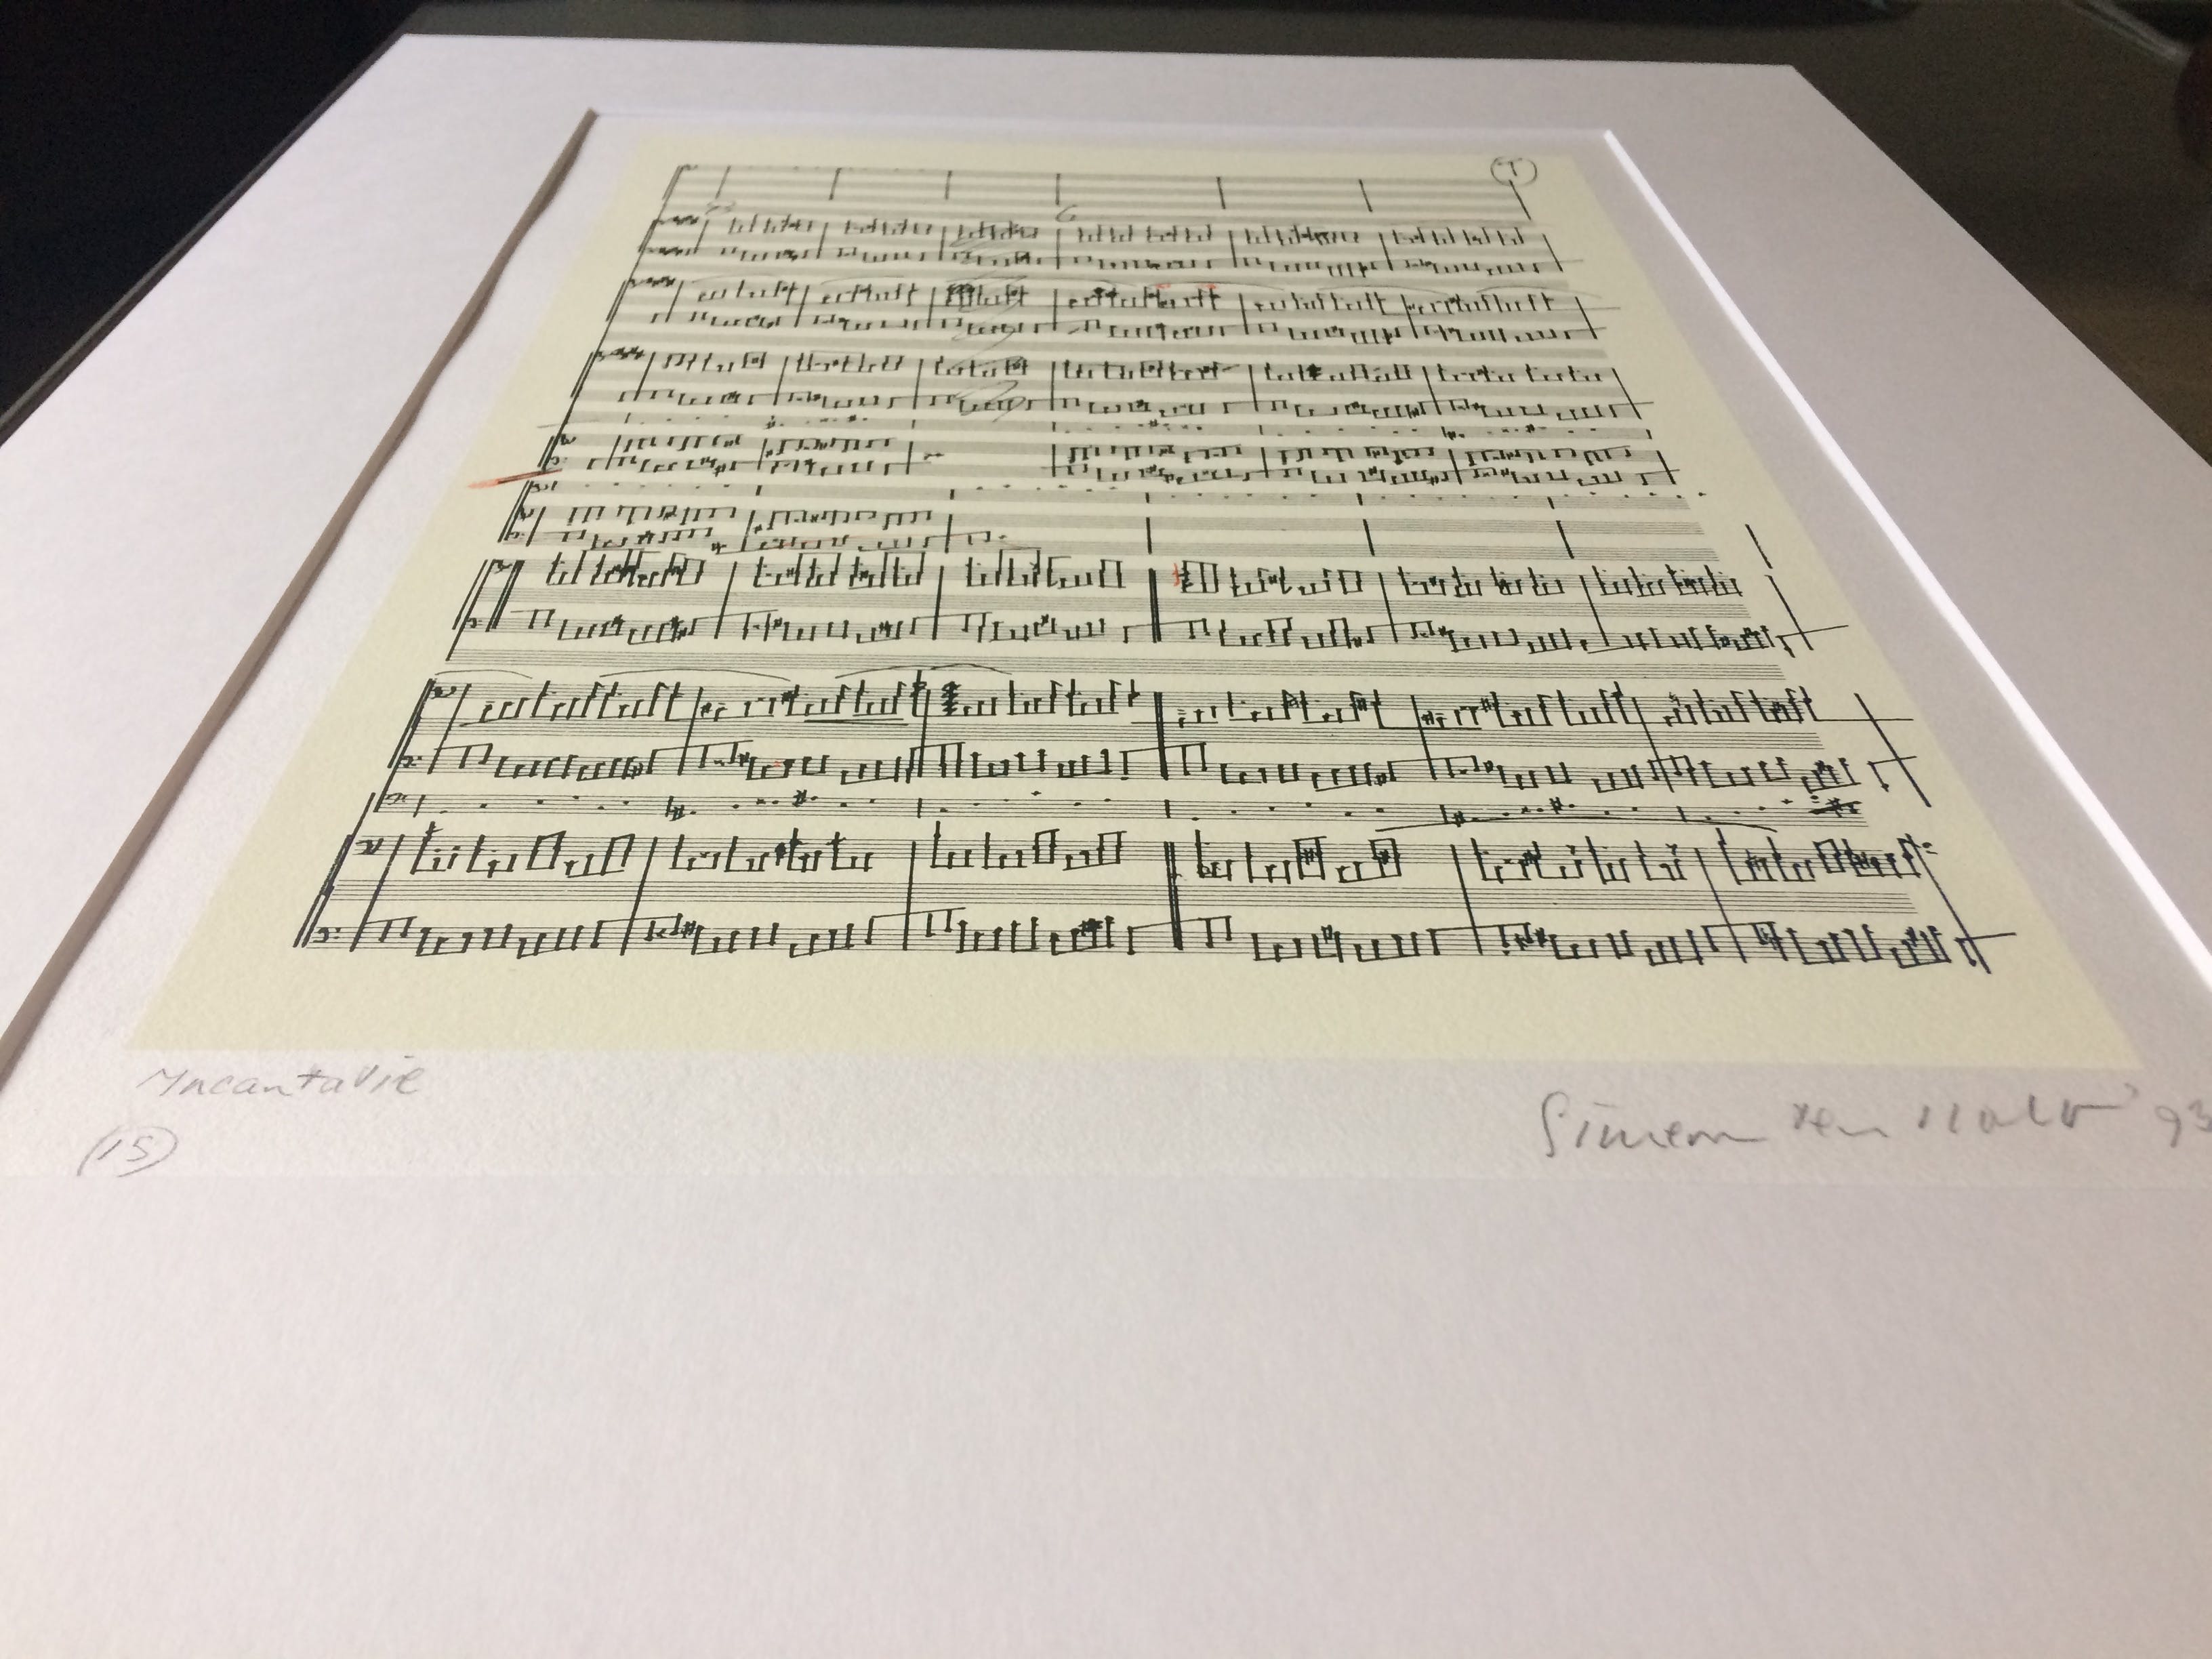 T
6
Incantatie
Simeon ten Holt '93
(15)